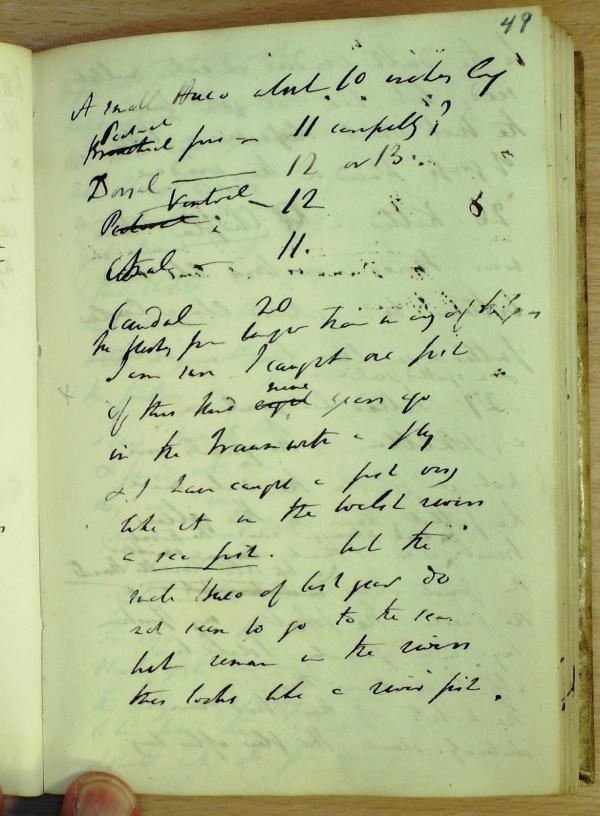 49
A small Huco about 10 inches long
Pectoral
Bronchial fins – 11 carefully?
Dorsal —— 12 or 13.
Ventral
Pectoral – 12 6
Anal – 11.
Caudal 20
the fleshy fin larger than in any of
I am sure I caught one fish
nine
of this kind eight years ago
in the Traun with a fly
& I have caught a fish very
like it in the Welsh rivers
a sea fish. but the
small Huco of last year do
not seem to go to the sea
but remain in the rivers
this looks like a river fish.